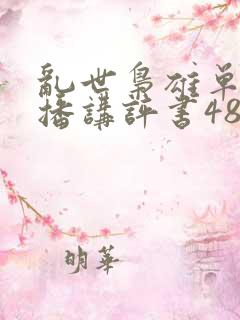 亂世梟雄单
播講評書48
明華